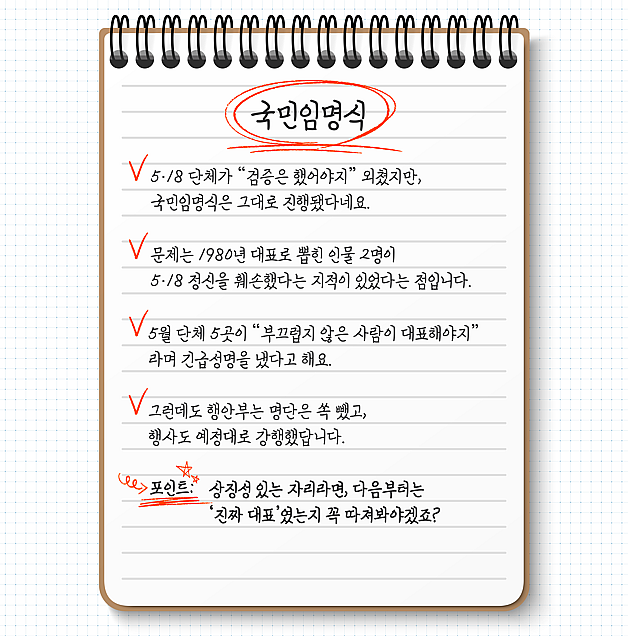 국민임명식
5·18 단체가 “검증은 했어야지” 외쳤지만,
국민임명식은 그대로 진행됐다네요.
문제는 1980년 대표로 뽑힌 인물 2명이
5·18 정신을 훼손했다는 지적이 있었다는 점입니다.
5월 단체 5곳이 “부끄럽지 않은 사람이 대표해야지”
라며 긴급성명을 냈다고 해요.
그런데도 행안부는 명단은 쏙 뺐고,
행사도 예정대로 강행했답니다.
포인트: 상징성 있는 자리라면, 다음부터는
‘진짜 대표’였는지 꼭 따져봐야겠죠?